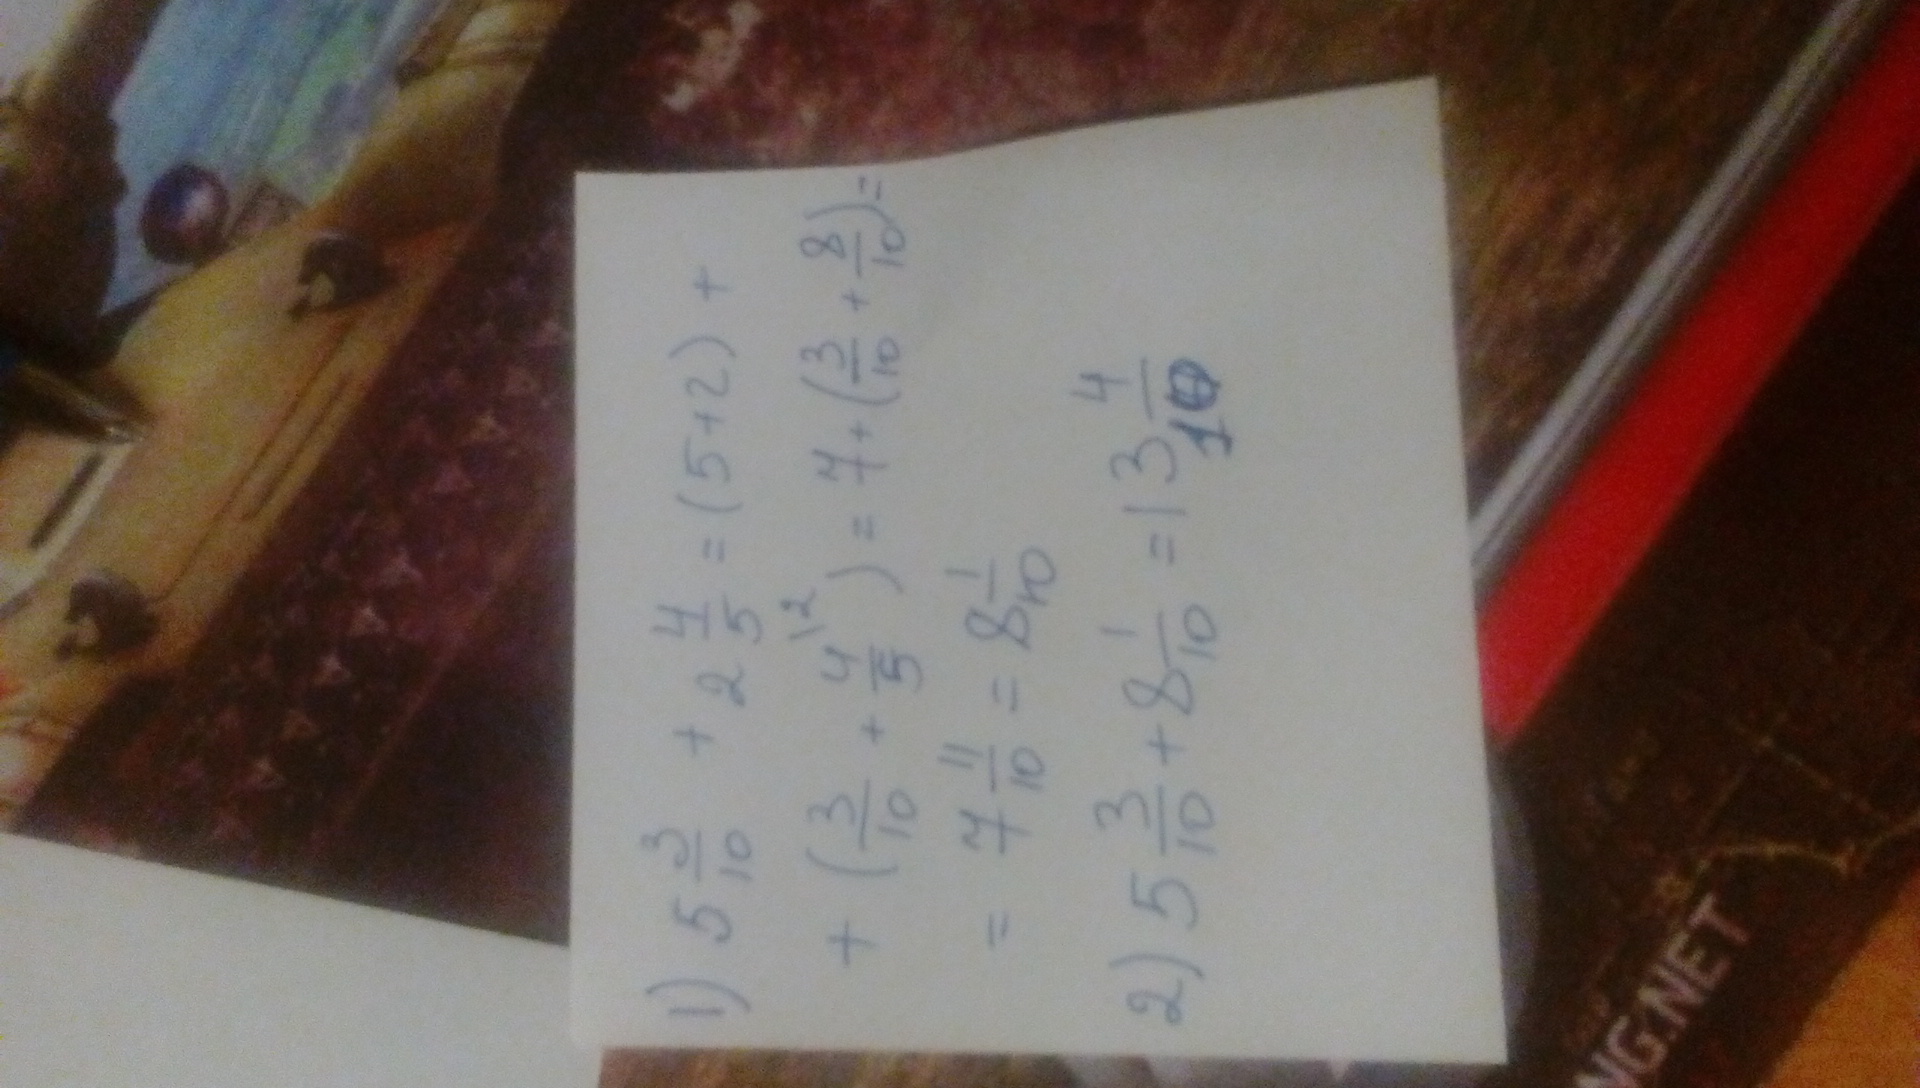 1) 5 3/10 + 2 4/5 = (5+2) +
+ (3/10 + 4/5 \2) = 7 + (3/10 + 8/10) =
= 7 11/10 = 8 1/10
2) 5 3/10 + 8 1/10 = 13 4/10
NG.NET